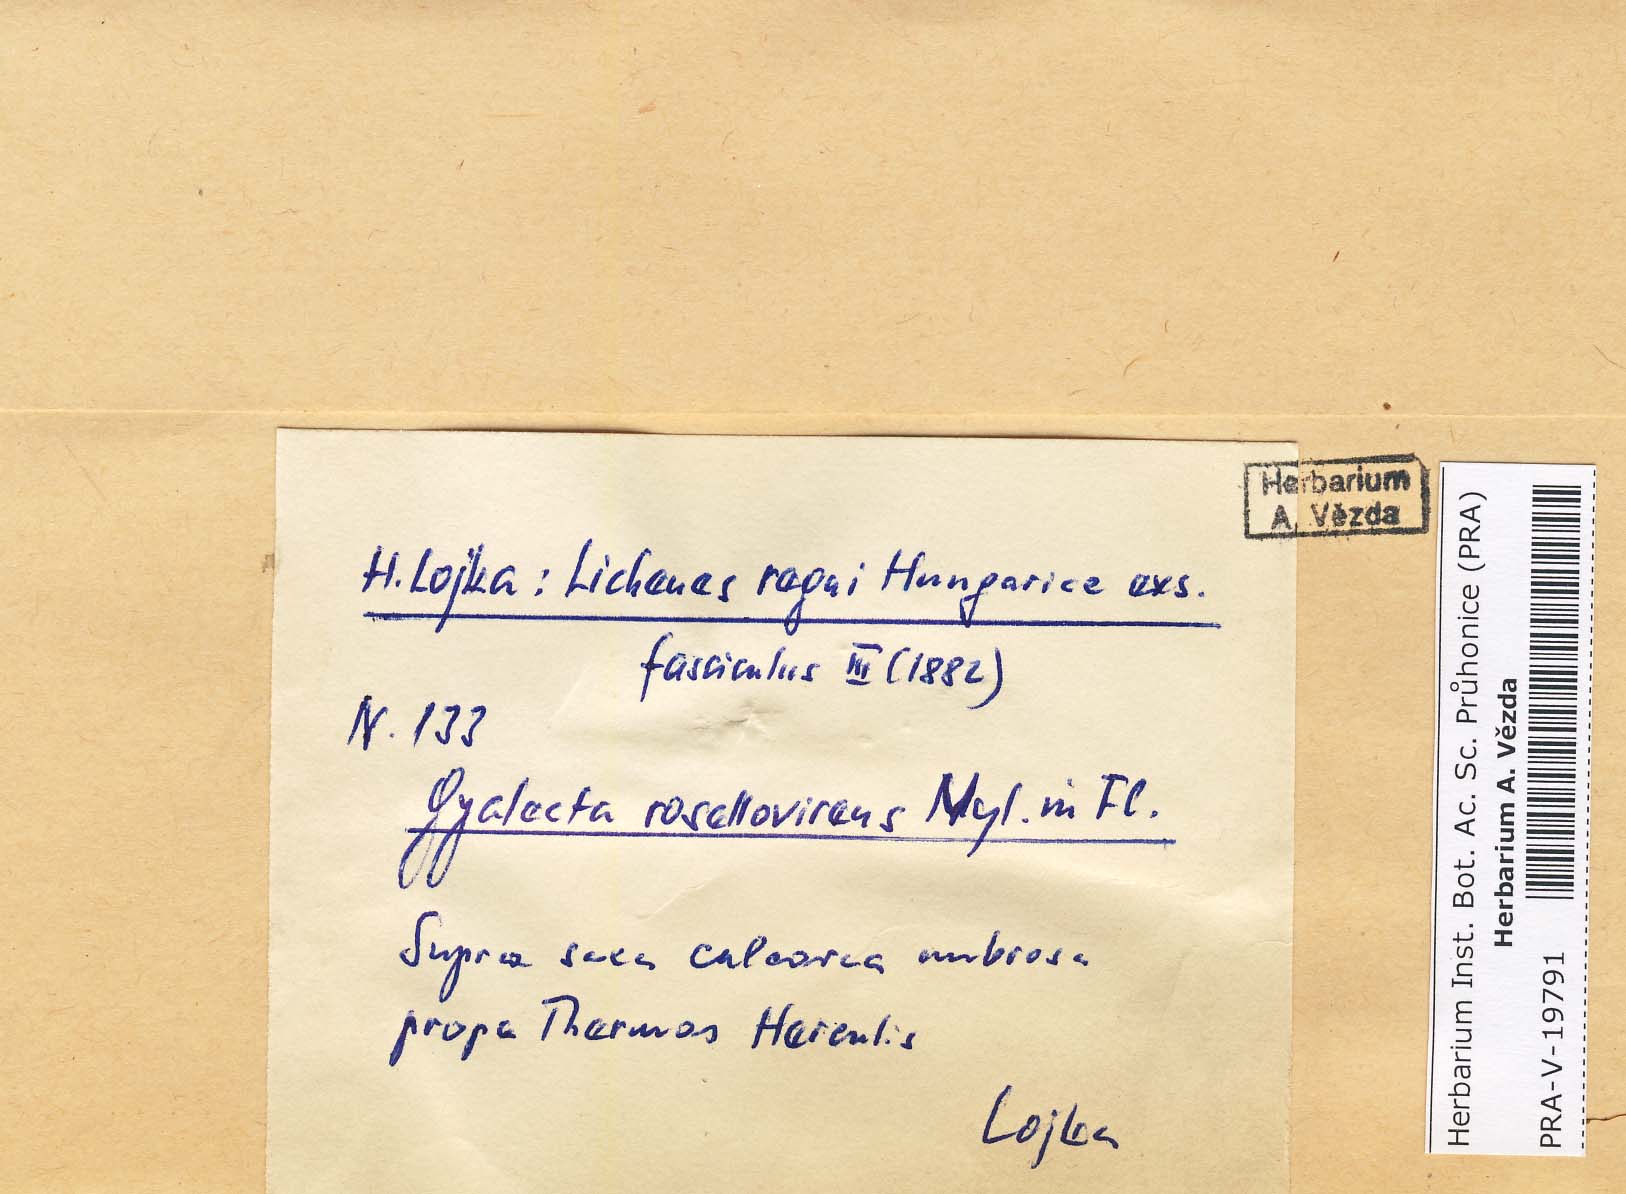 Herbarium
A. Vězda
H. Lojka: Lichenes regni Hungarice exs.
fasciculus III (1882)
N. 133
Gyalecta rosellovirens Nyl. in Fl.
Supra saxa calcarea umbrosa
prope Thermas Herculis
Lojka
Herbarium Inst. Bot. Ac. Sc. Průhonice (PRA)
Herbarium A. Vězda
PRA-V-19791